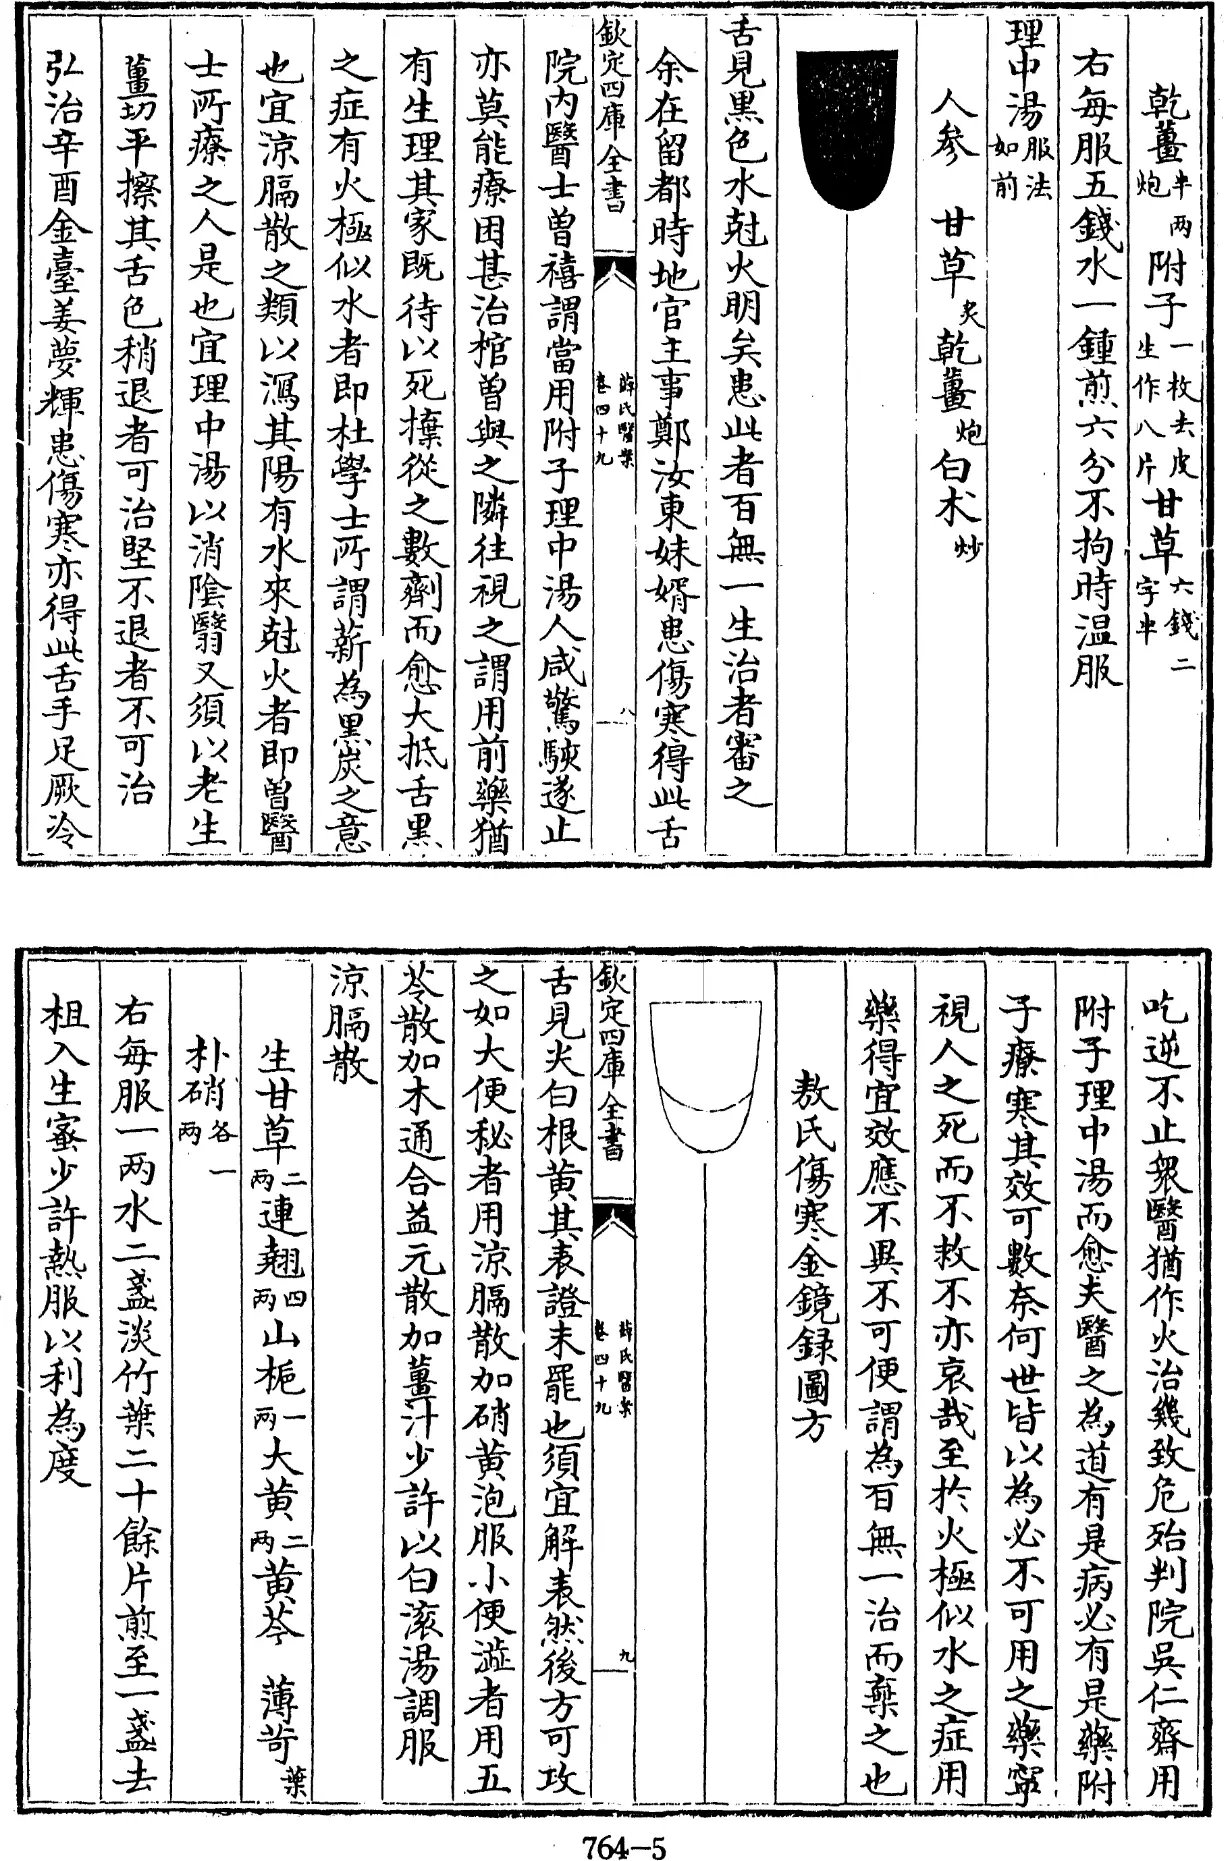 乾薑半两炮附子一枚去皮生作八片甘草六錢二字半
右每服五錢水一鍾煎六分不拘時温服
理中湯服法如前
人參　甘草炙乾薑炮白术炒
舌見黑色水尅火明矣患此者百無一生治者審之
余在留都時地官主事鄭汝東妹婿患傷寒得此舌
欽定四庫全書
薛氏醫案
卷四十九
八
院内醫士曽禧謂當用附子理中湯人咸驚駭遂止
亦莫能療困甚治棺曽與之隣往視之謂用前藥猶
有生理其家既待以死棄從之數劑而愈大抵舌黑
之症有火極似水者即杜學士所謂薪為黑炭之意
也宜涼膈散之類以瀉其陽有水來尅火者即曽醫
士所療之人是也宜理中湯以消陰翳又須以老生
薑切平擦其舌色稍退者可治堅不退者不可治
弘治辛酉金臺姜夢輝患傷寒亦得此舌手足厥冷
吃逆不止衆醫猶作火治幾致危殆判院吳仁齋用
附子理中湯而愈夫醫之為道有是病必有是藥附
子療寒其效可數奈何世皆以為必不可用之藥寧
視人之死而不救不亦哀哉至於火極似水之症用
藥得宜效應不異不可便謂為百無一治而棄之也
敖氏傷寒金鏡録圖方
欽定四庫全書
薛氏醫案
卷四十九
九
舌見尖白根黄其表證未罷也須宜解表然後方可攻
之如大便秘者用涼膈散加硝黄泡服小便澁者用五
苓散加木通合益元散加薑汁少許以白滚湯調服
涼膈散
生甘草二两連翹四两山梔一两大黄二两黄芩　薄苛葉
朴硝各一两
右每服一两水二盞淡竹葉二十餘片煎至一盞去
柤入生蜜少許熱服以利為度
764-5